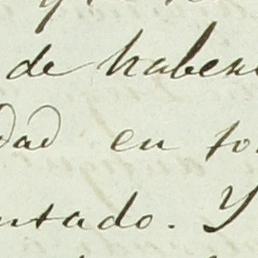 de haber
dad en to
ntado. Y